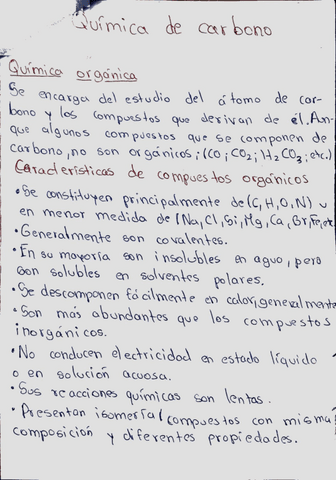 Química de carbono
Química orgánica
Se encarga del estudio del átomo de car-
bono y los compuestos que derivan de él. Aun-
que algunos compuestos que se componen de
carbono, no son orgánicos; (CO; CO2; H2CO3; etc.)
Características de compuestos orgánicos
• Se constituyen principalmente de (C, H, O, N) y
en menor medida de (Na, Cl, Si, Mg, Ca, Br, Fe, etc
• Generalmente son covalentes.
• En su mayoría son insolubles en agua, pero
son solubles en solventes polares.
• Se descomponen fácilmente en calor, generalmente
• Son más abundantes que los compuestos
inorgánicos.
• No conducen electricidad en estado líquido
o en solución acuosa.
• Sus reacciones químicas son lentas.
• Presentan isomería (compuestos con misma
composición y diferentes propiedades.